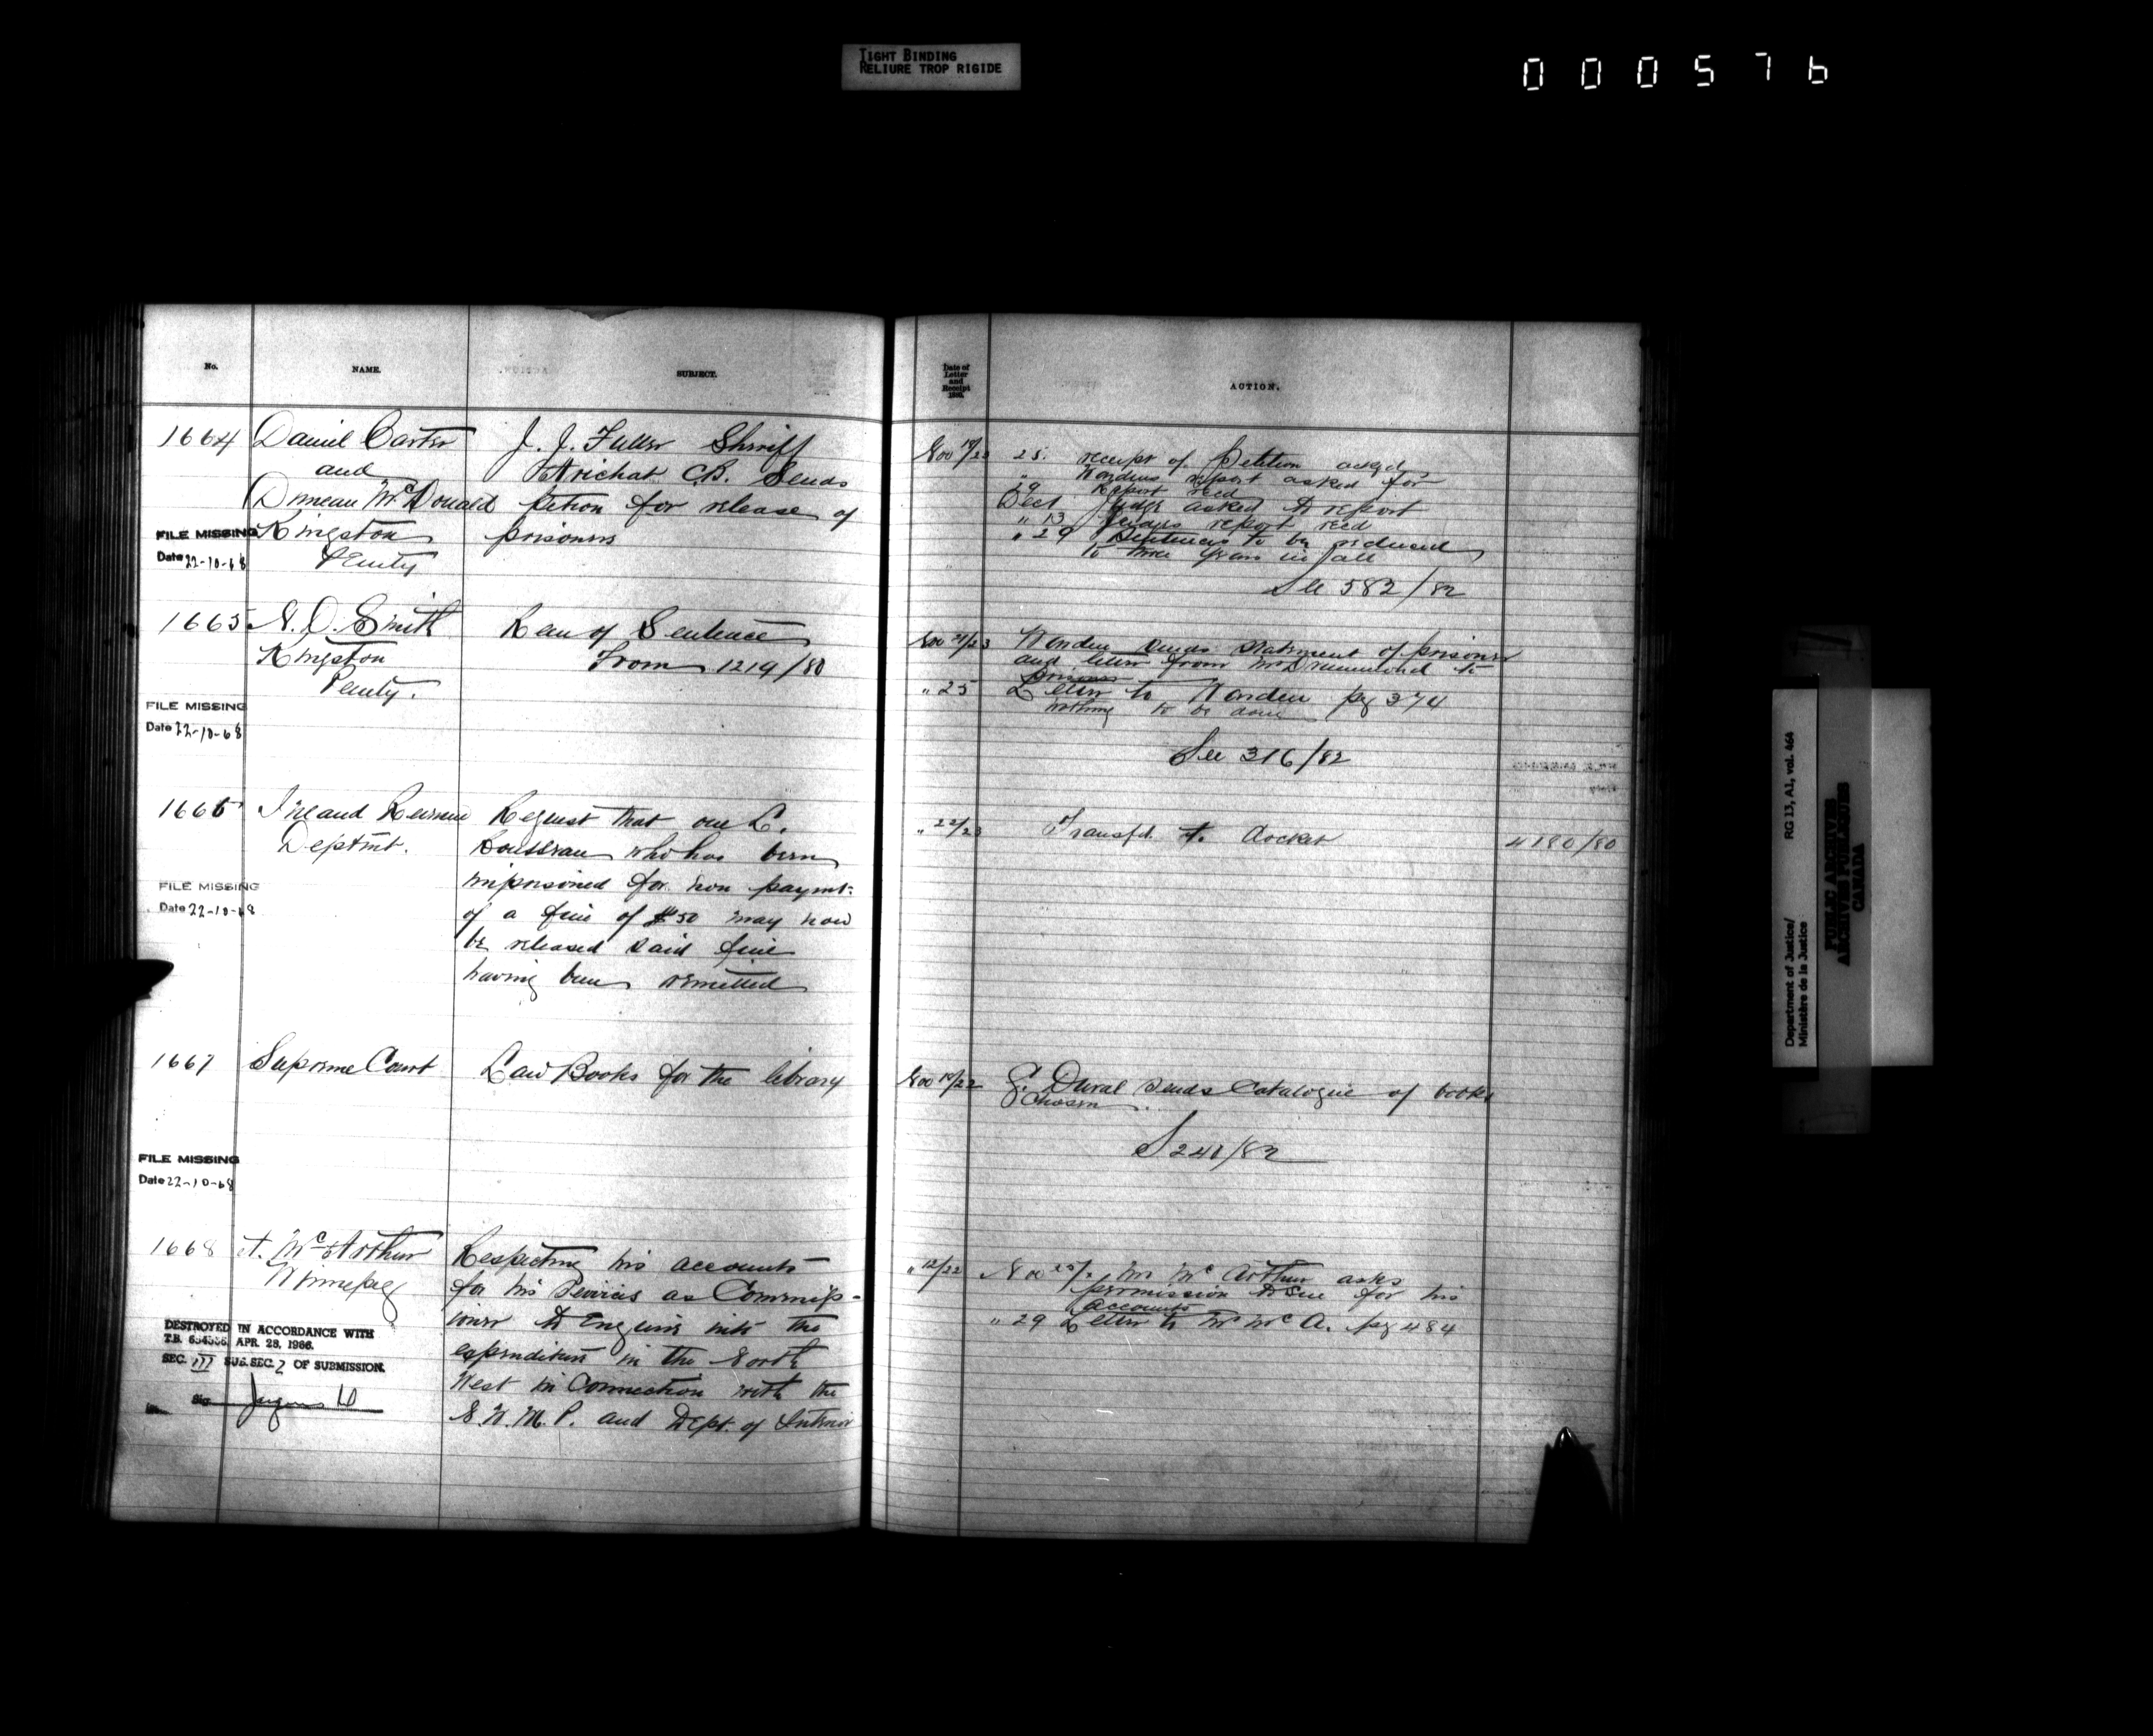 TIGHT BINDING
RELIURE TROP RIGIDE
000576
No.
NAME.
SUBJECT.
1664 Daniel Carter
and
Duncan McDonald
Kingston
Penty
FILE MISSING
Date 22-10-68
J. J. Fuller Sheriff
Arichat C.B. Sends
petion for release of
prisoners
1665 N. O. Smith
Kingston
Penty.
FILE MISSING
Date 22-10-68
Rem of Sentence
From 1219/80
1666 Inland Revenue
Deptmt.
FILE MISSING
Date 22-10-68
Request that one L.
Rousseau who has been
imprisoned for non paymt:
of a fine of $50 may now
be released said fine
having been remitted
1667 Supreme Court
Law Books for the library
FILE MISSING
Date 22-10-68
1668 A. McArthur
Winnipeg
DESTROYED IN ACCORDANCE WITH
T.B. APR. 28, 1966.
SEC. III SUB.SEC. 2 OF SUBMISSION.
Sig
Respecting his accounts
for his Services as Commiss-
ioner to Enquire into the
expenditure in the North
West in Connection with the
N.W.M.P. and Dept. of Interior
Date of
Letter
and
Receipt
ACTION.
Nov 19/23 25. receipt of Petition ackgd
" Wardens report asked for
29 Report recd
Dect Judge asked to report
" 13 Judges report recd
" 29 Sentences to be reduced
to three years in all
See 582/82
Nov 21/23 Warden sends statement of prisoner
and letter from Mr Drummond to
prisoner
" 25 Letter to Warden pg 374
nothing to be done
See 316/82
" 22/23 Transfd. to docket 4180/80
Nov 19/22 Duval sends Catalogue of books
chosen
S 241/82
" 12/22 Nov Mr McArthur asks
permission to sue for his
accounts
" 29 Letter to Mr McA. pg 484
Department of Justice/
Ministère de la Justice
RG 13, A1, vol. 464
PUBLIC ARCHIVES
ARCHIVES PUBLIQUES
CANADA